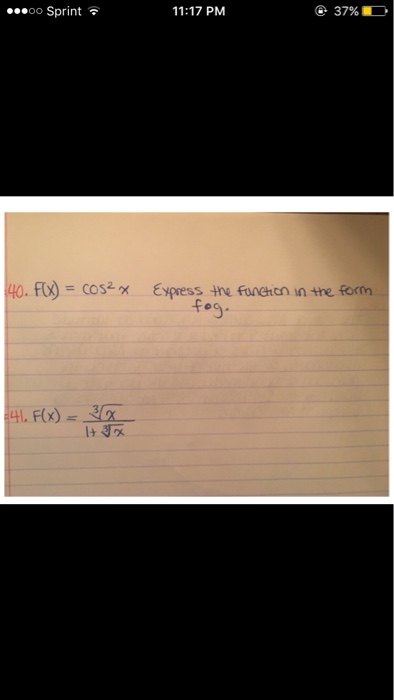 Sprint 11:17 PM 37%
40. F(x) = cos² x Express the function in the form
f∘g.
41. F(x) = ∛x
1+ ∛x